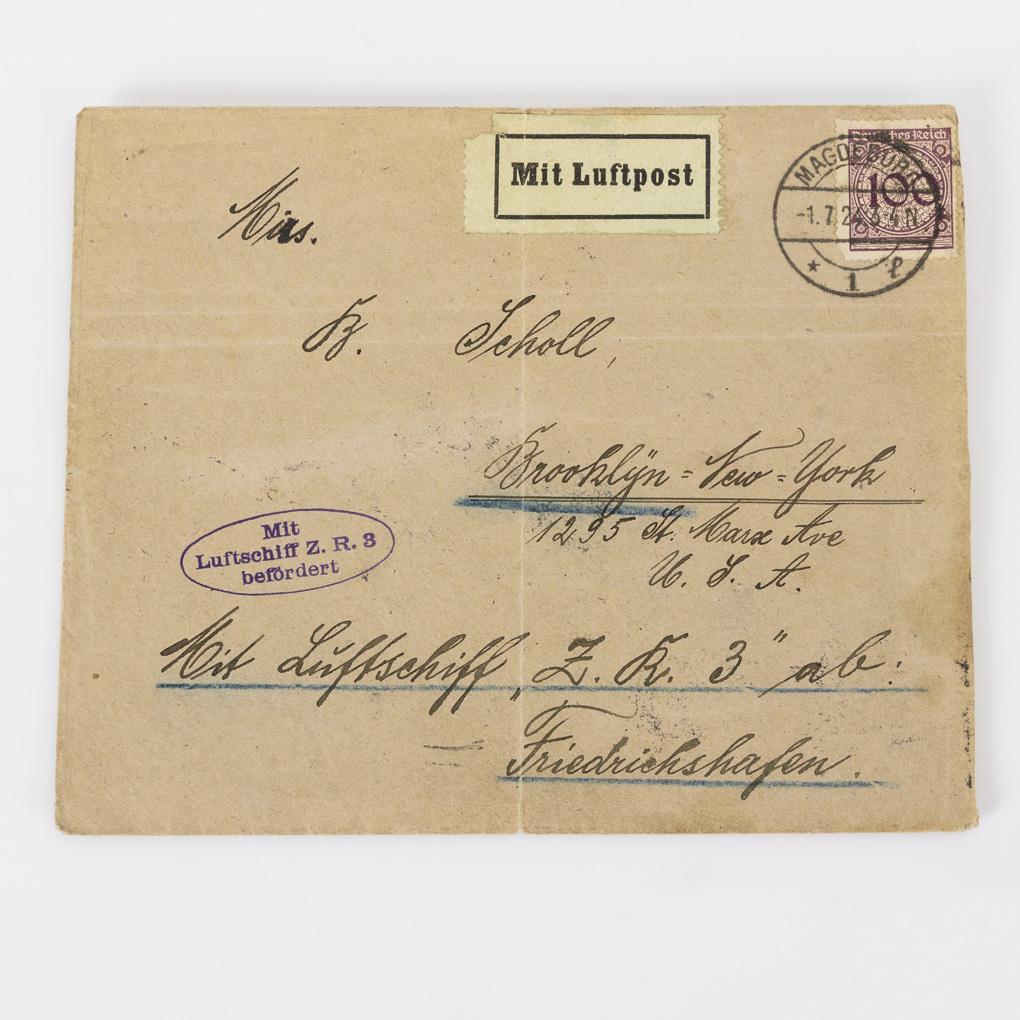 Mit Luftpost
Deutsches Reich
100
MAGDEBURG
-1.7.24. 3-4 N.
* 1 l
Mrs.
B. Scholl,
Brooklÿn = New = York
1295 St. Marx Ave
U. S. A.
Mit
Luftschiff Z. R. 3
befördert
Mit Luftschiff „Z. R. 3" ab:
Friedrichshafen.